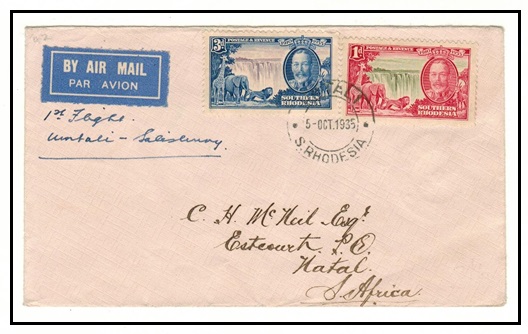 BY AIR MAIL
PAR AVION
3d
POSTAGE & REVENUE
SOUTHERN
RHODESIA
1d
POSTAGE & REVENUE
SOUTHERN
RHODESIA
5-OCT.1935
S.RHODESIA
1st Flight.
Umtali - Salisbury.
C. H. McNeil Esqr.
Estcourt P.O.
Natal.
S. Africa.